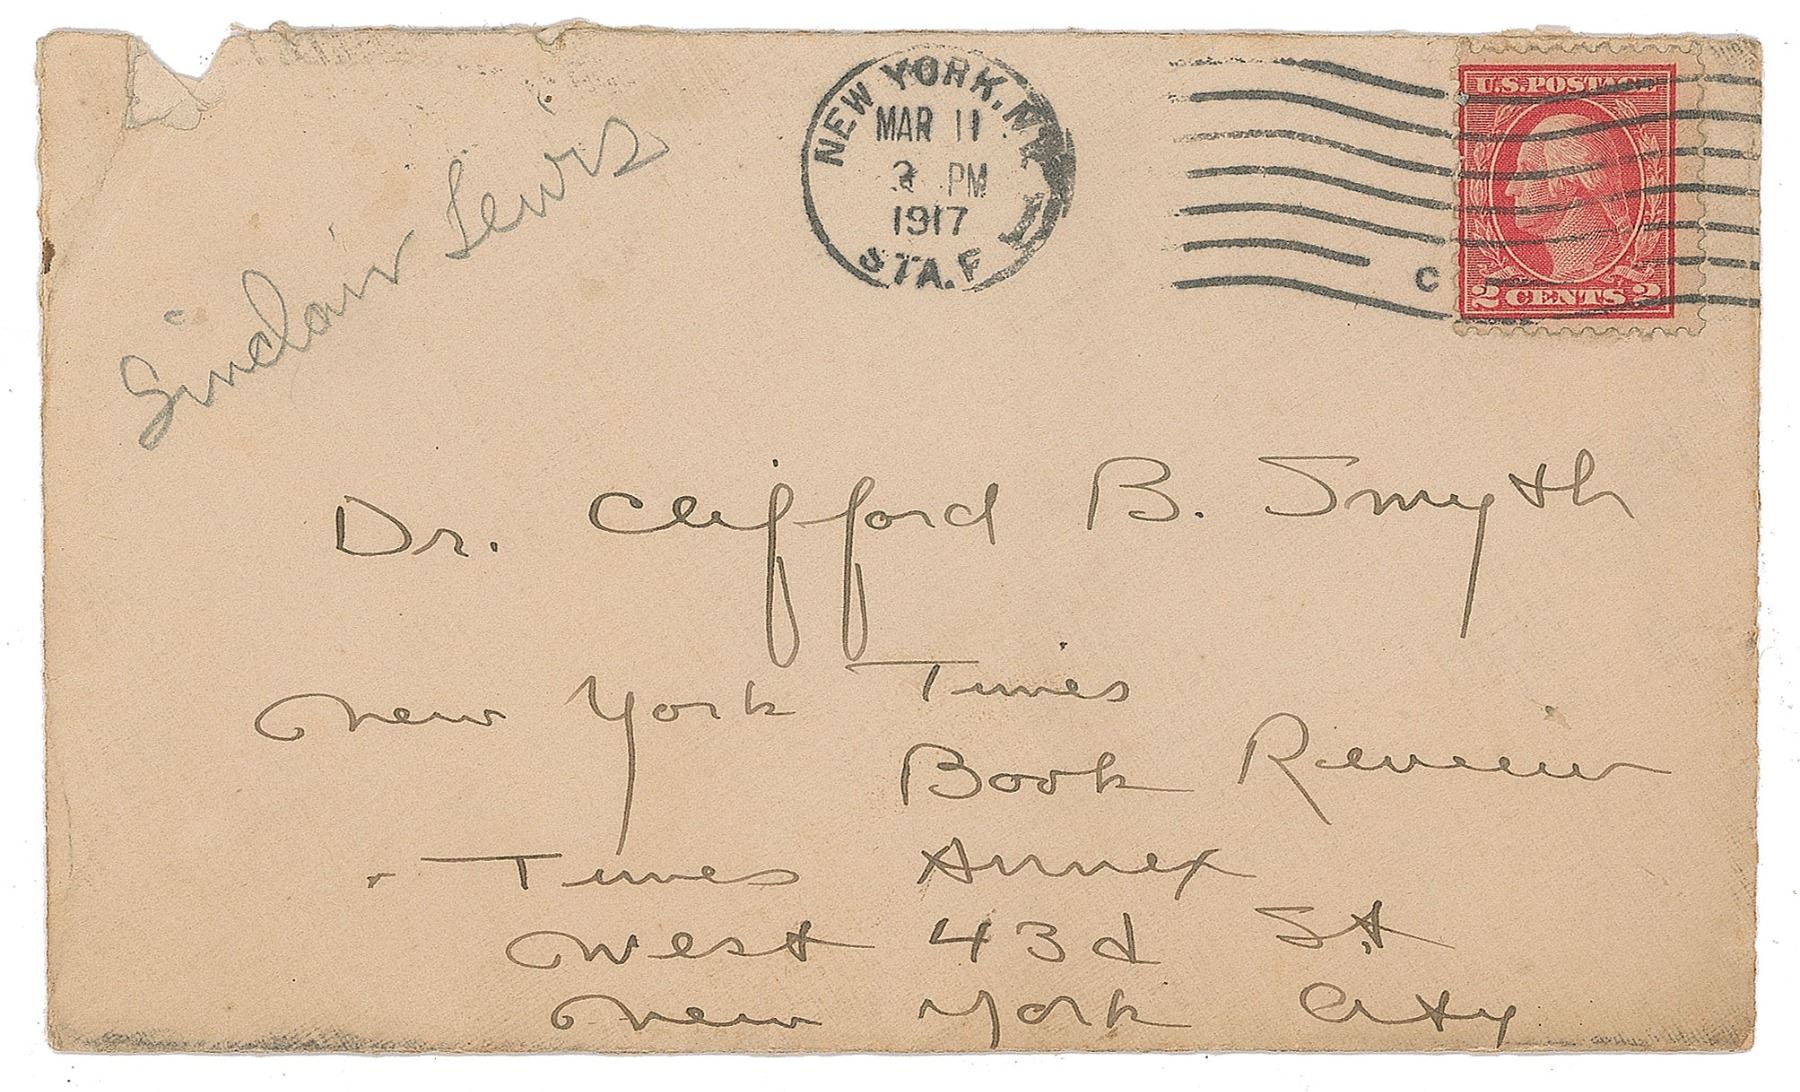 Sinclair Lewis
NEW YORK, N.Y.
MAR 11
3 PM
1917
STA. F
C
U.S. POSTAGE
2 CENTS 2
Dr. Clifford B. Smyth
New York Times
Book Review
Times Annex
West 43d St
New York City